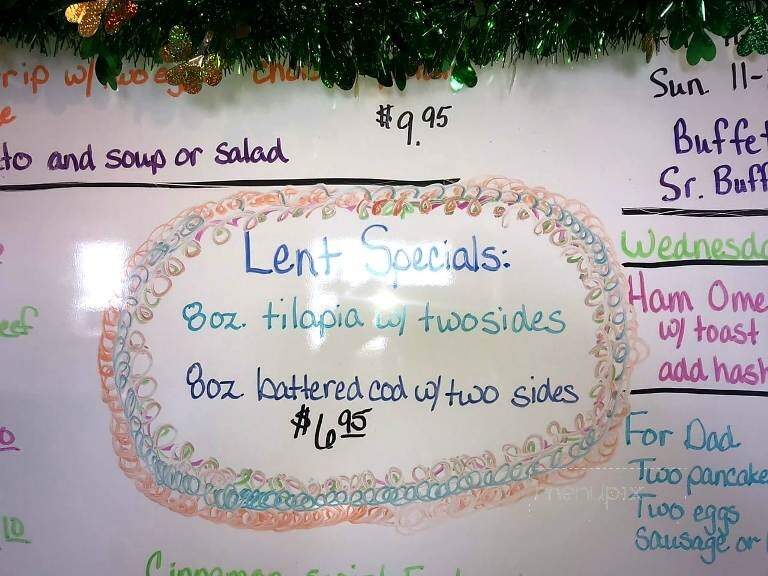 $9.95
to and soup or salad
Lent Specials:
8oz. tilapia w/ two sides
8oz battered cod w/ two sides
$6.95
Sun. 11-
Buffet
Sr. Buff
Wednesda
Ham Ome
w/ toast
add hash
For Dad
Two pancake
Two eggs
sausage or
menupix